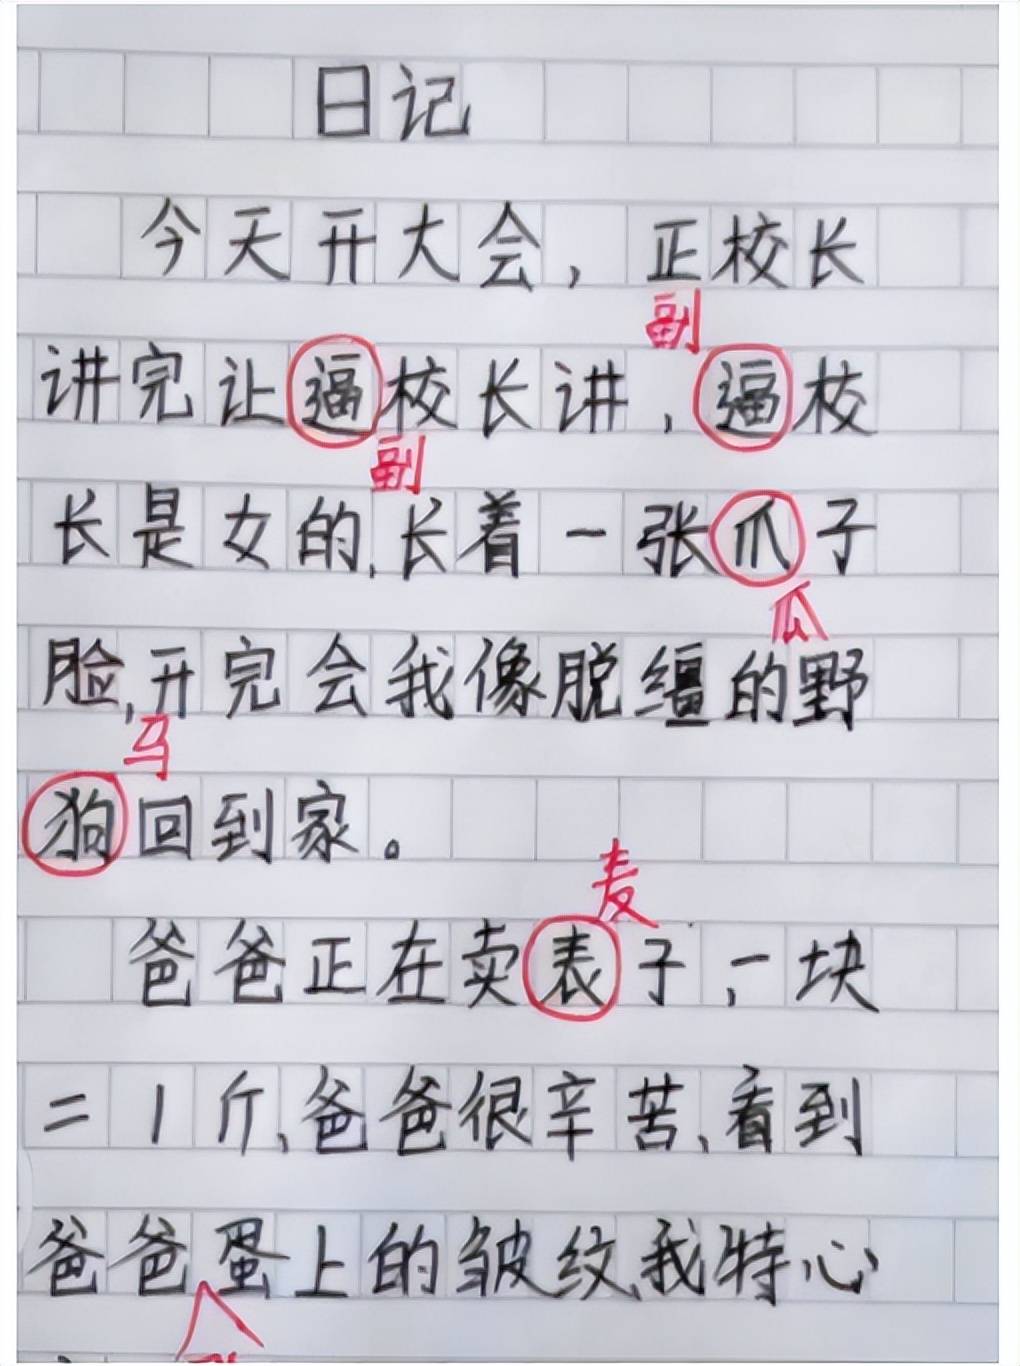 日记
今天开大会，正校长
副
讲完让逼校长讲，逼校
副
长是女的,长着一张爪子
瓜
脸,开完会我像脱缰的野
马
狗回到家。
麦
爸爸正在卖表子，一块
二1斤,爸爸很辛苦,看到
爸爸蛋上的皱纹,我特心